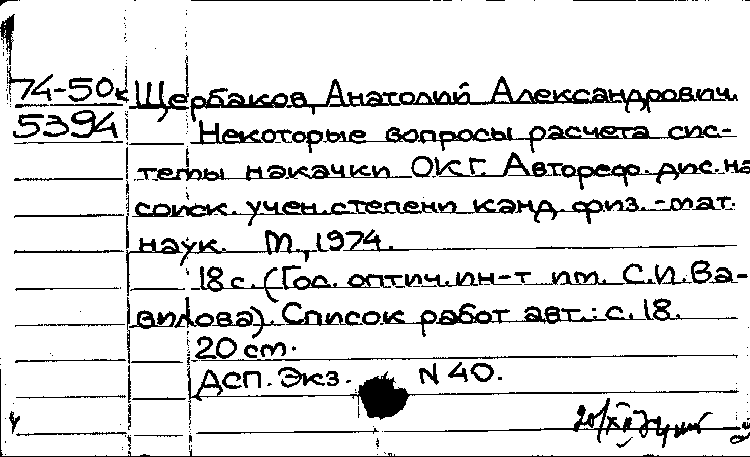 74-50к Щербаков, Анатолий Александрович.
5394 Некоторые вопросы расчета сис-
темы накачки ОКГ. Автореф. дис. на
соиск. учен. степени канд. физ.-мат.
наук. М., 1974.
18 с. (Гос. оптич. ин-т им. С.И. Ва-
вилова). Список работ авт.: с. 18.
20 cm.
ДСП. Экз. N 40.
20/XII